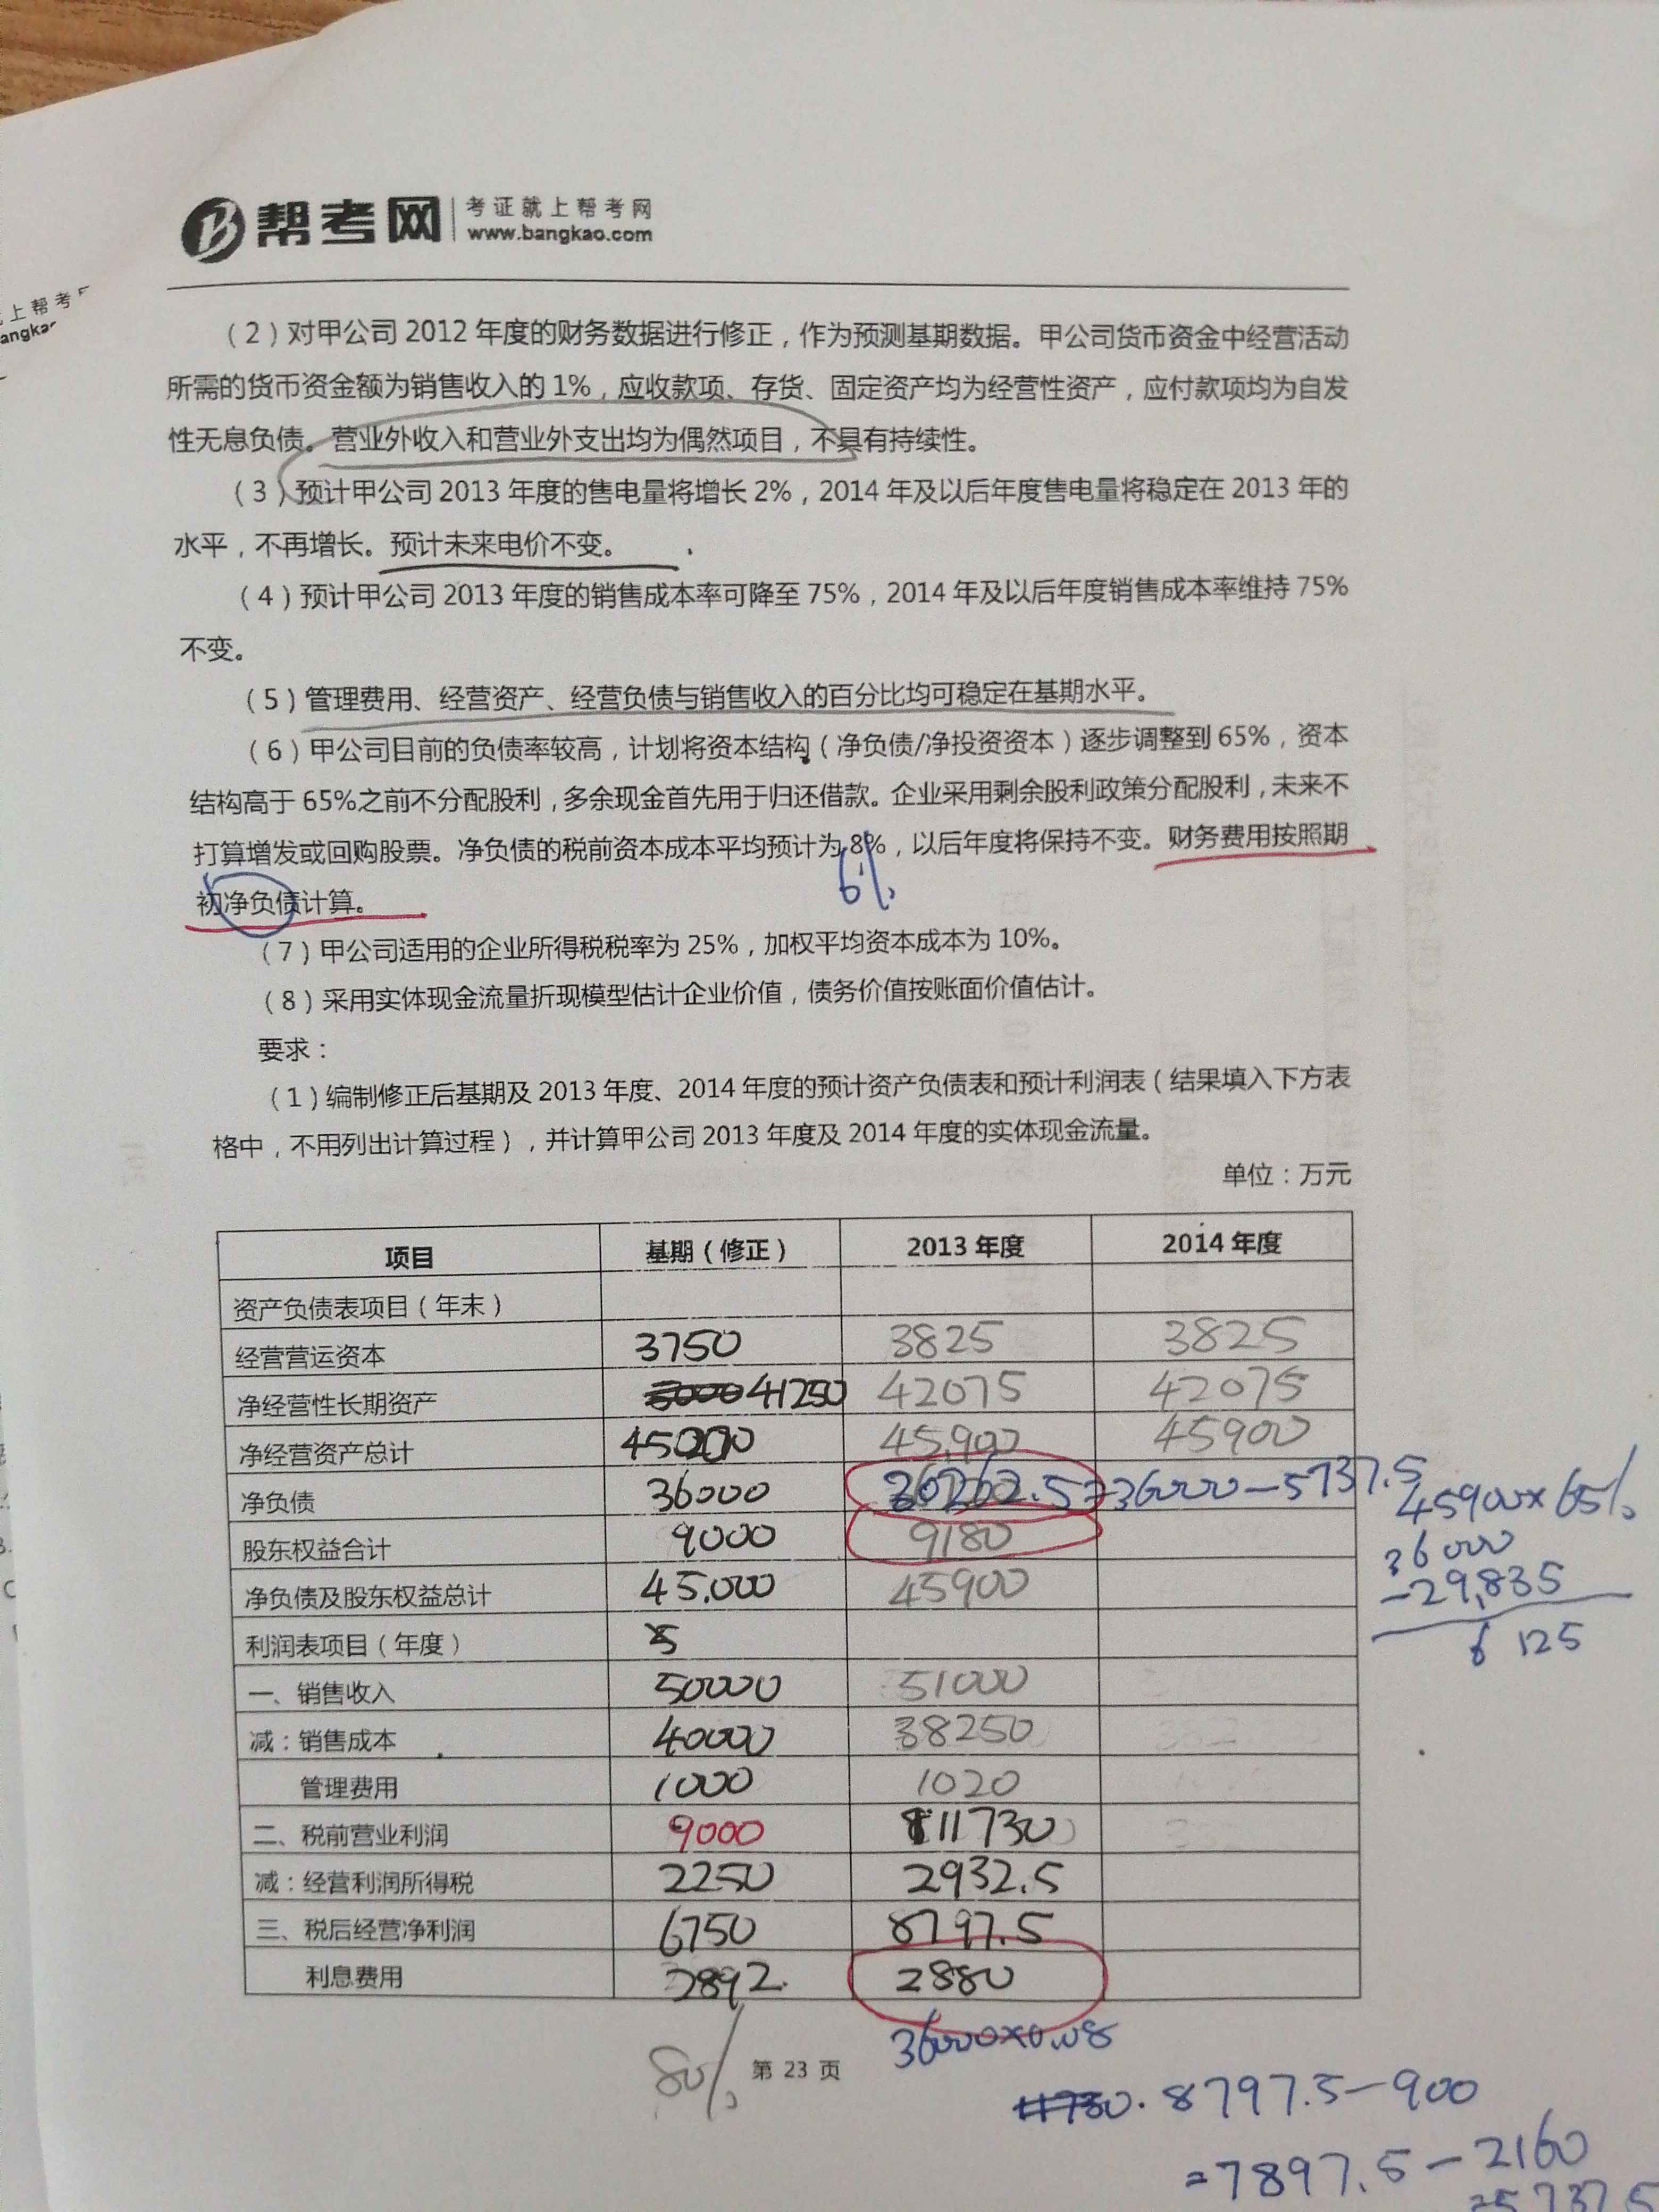 帮考网 考证就上帮考网
www.bangkao.com
上帮考
（2）对甲公司 2012 年度的财务数据进行修正，作为预测基期数据。甲公司货币资金中经营活动
所需的货币资金额为销售收入的 1%，应收款项、存货、固定资产均为经营性资产，应付款项均为自发
性无息负债。营业外收入和营业外支出均为偶然项目，不具有持续性。
（3）预计甲公司 2013 年度的售电量将增长 2%，2014 年及以后年度售电量将稳定在 2013 年的
水平，不再增长。预计未来电价不变。
（4）预计甲公司 2013 年度的销售成本率可降至 75%，2014 年及以后年度销售成本率维持 75%
不变。
（5）管理费用、经营资产、经营负债与销售收入的百分比均可稳定在基期水平。
（6）甲公司目前的负债率较高，计划将资本结构（净负债/净投资资本）逐步调整到 65%，资本
结构高于 65%之前不分配股利，多余现金首先用于归还借款。企业采用剩余股利政策分配股利，未来不
打算增发或回购股票。净负债的税前资本成本平均预计为 8%，以后年度将保持不变。财务费用按照期
6%
初净负债计算。
（7）甲公司适用的企业所得税税率为 25%，加权平均资本成本为 10%。
（8）采用实体现金流量折现模型估计企业价值，债务价值按账面价值估计。
要求：
（1）编制修正后基期及 2013 年度、2014 年度的预计资产负债表和预计利润表（结果填入下方表
格中，不用列出计算过程），并计算甲公司 2013 年度及 2014 年度的实体现金流量。
单位：万元
项目 基期（修正） 2013 年度 2014 年度
资产负债表项目（年末）
经营营运资本 3750 3825 3825
净经营性长期资产 41250 42075 42075
净经营资产总计 45000 45900 45900
净负债 36000 30262.5=36000-5737.5
45900×65%
股东权益合计 9000 9180
36000
净负债及股东权益总计 45.000 45900
-29,835
利润表项目（年度）
6125
一、销售收入 50000 51000
减：销售成本 40000 38250
管理费用 1000 1020
二、税前营业利润 9000 11730
减：经营利润所得税 2250 2932.5
三、税后经营净利润 6750 8797.5
利息费用 2892. 2880
36000×0.08
80%
第 23 页
8797.5-900
=7897.5-2160
=5737.5